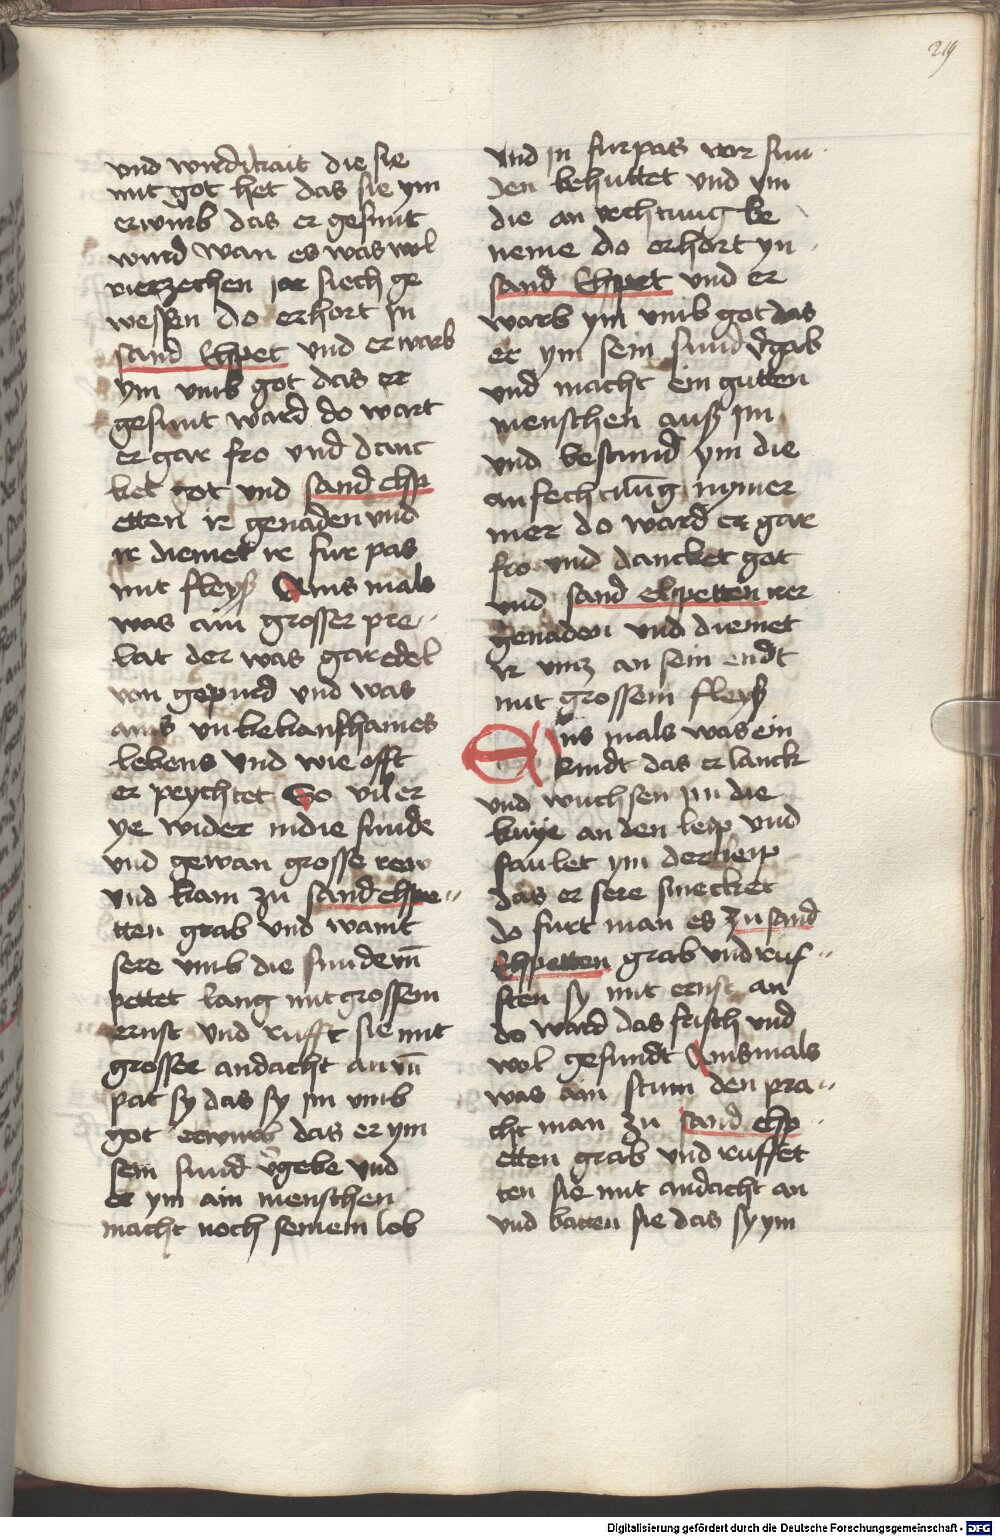 219
und wirdikait die sie
mit got het das sie ym
erwurb das er gesunt
wurd wan es was wol
vierzechen jor siech ge
wessen do erhort jn
sand Elspet und er warb
ym umb got das er
gesunt ward do wart
er gar fro und danc
ket got und sand elsp
etten ir genaden und
ir dienet ir fur pas
mit fleyß Ains mals
was ain grosser pre
lat der was gar edel
von gepurd und was
ains unkekanschames
lebens und wie offt
er peychtet So vil er
ye wider in die sunde
und gewan grosse rew
und kam zu sand elspe
tten grab und waint
sere umb die sunde vñ
pettet lang mit grossem
ernst und rufft sie mit
grosser andacht an vñ
pat sy das sy im umb
got erwurb das er ym
sein sund vgebe und
er ym ain menschen
macht noch seinem lob
und jn furpas vor sun
den behuttet und ym
die an vechtung be
neme do erhort yn
sand Elspet und er
warb ym umb got das
er ym sein sund vgab
und macht ein gutten
menschen auß im
und bestund ym die
anfechtung nymer
mer do ward er gar
fro und dancket got
und sand elspetten irer
genaden und dienet
ir unz an sein endt
mit grossem fleyß
Eins mals was ein
kindt das erlanck
und wuchsen im die
knye an den leip und
faulet ym der leip
das er sere smecket
do furt man es zu sand
Elspetten grab und ruf
ften sy mit ernst an
do ward das frisch und
wol gesundt Ains mals
was ain stum den pra
cht man zu sand elsp
etten grab und ruffet
ten sie mit andacht an
und batten sie das sy ym
Digitalisierung gefördert durch die Deutsche Forschungsgemeinschaft - DFG